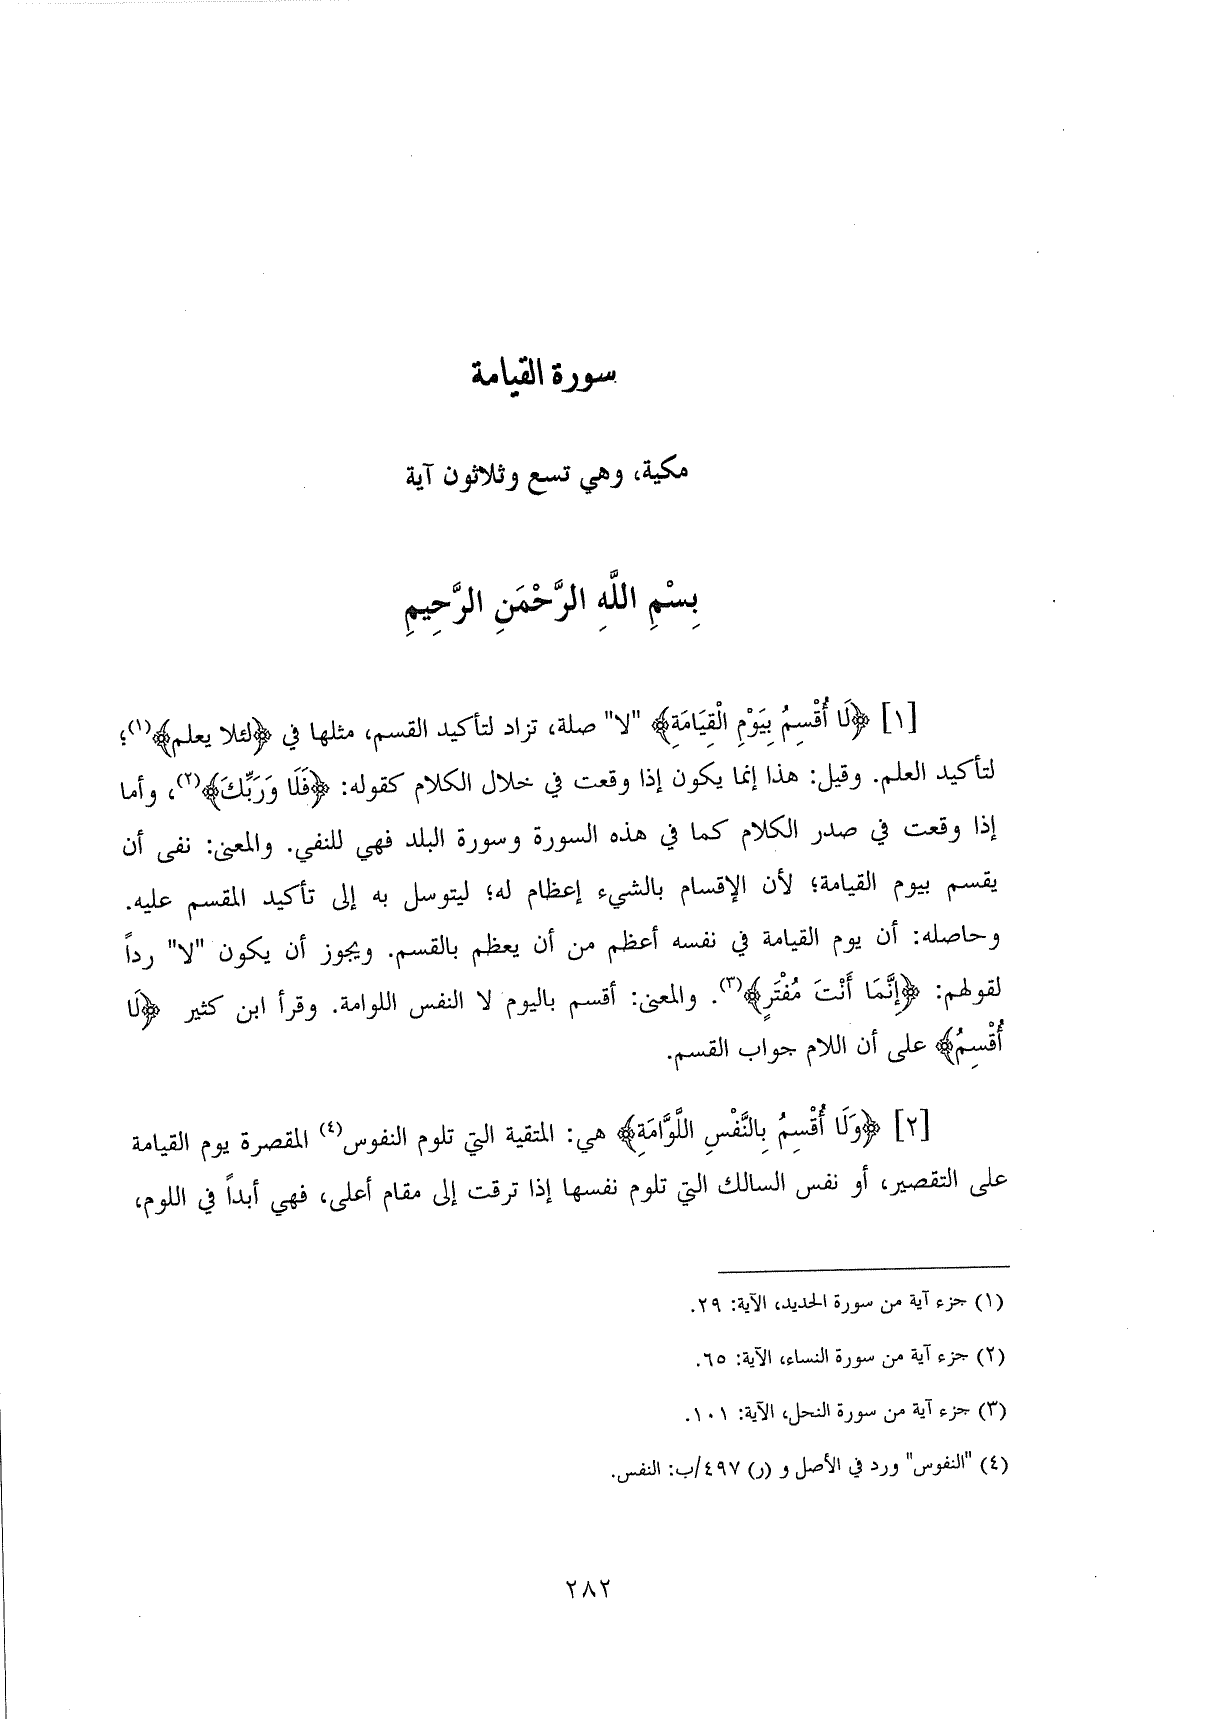 سورة القيامة
مكية، وهي تسع وثلاثون آية
بِسْمِ اللَّهِ الرَّحْمَنِ الرَّحِيمِ
[١] ﴿لَا أُقْسِمُ بِيَوْمِ الْقِيَامَةِ﴾ "لا" صلة، تزاد لتأكيد القسم، مثلها في ﴿لئلا يعلم﴾(١)؛
لتأكيد العلم. وقيل: هذا إنما يكون إذا وقعت في خلال الكلام كقوله: ﴿فَلَا وَرَبِّكَ﴾(٢)، وأما
إذا وقعت في صدر الكلام كما في هذه السورة وسورة البلد فهي للنفي. والمعنى: نفى أن
يقسم بيوم القيامة؛ لأن الإقسام بالشيء إعظام له؛ ليتوسل به إلى تأكيد المقسم عليه.
وحاصله: أن يوم القيامة في نفسه أعظم من أن يعظم بالقسم. ويجوز أن يكون "لا" رداً
لقولهم: ﴿إِنَّمَا أَنْتَ مُفْتَرٍ﴾(٣). والمعنى: أقسم باليوم لا النفس اللوامة. وقرأ ابن كثير ﴿لَا
أُقْسِمُ﴾ على أن اللام جواب القسم.
[٢] ﴿وَلَا أُقْسِمُ بِالنَّفْسِ اللَّوَّامَةِ﴾ هي: المتقية التي تلوم النفوس(٤) المقصرة يوم القيامة
على التقصير، أو نفس السالك التي تلوم نفسها إذا ترقت إلى مقام أعلى، فهي أبداً في اللوم،
(١) جزء آية من سورة الحديد، الآية: ٢٩.
(٢) جزء آية من سورة النساء، الآية: ٦٥.
(٣) جزء آية من سورة النحل، الآية: ١٠١.
(٤) "النفوس" ورد في الأصل و (ر) ٤٩٧/ب: النفس.
٢٨٢